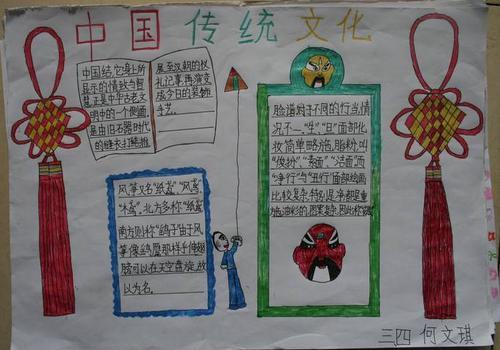 中国传统文化
中国结,它身上所
显示的情致与智
慧正是中华古老文
明中的一个侧面,
是由旧石器时代
的缝衣打结,推
展至汉朝的仪
礼记事,再演变
成今日的装饰
手艺。
脸谱对于不同的行当,情
况不一,"生"、"旦"面部化
妆简单,略施脂粉,叫
"俊扮"、"素面"、"洁面"。而
"净行"与"丑行"面部绘画
比较复杂,特别是净,都是重
施油彩的,图案复杂,因此称
风筝又名"纸鸢"、"风鸢"
南方则称"鹞子",由于风
筝像鹞鹰那样平伸翅
膀可以在天空盘旋,故
以为名。
三四 何文琪